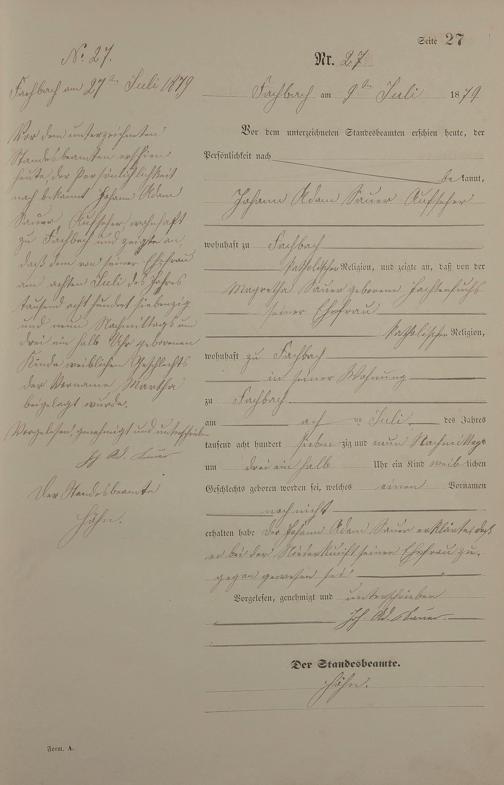 Seite 27
Nr. 27
Fachbach am 9ten Juli 1879
Vor dem unterzeichneten Standesbeamten erschien heute, der
Persönlichkeit nach
bekannt,
Johann Adam Sauer Aufseher
wohnhaft zu Fachbach
katholischer Religion, und zeigte an, daß von der
Magretha Sauer geborenen
seiner Ehefrau
katholischer Religion,
wohnhaft zu Fachbach
in seiner Wohnung
zu Fachbach
am ach ten Juli des Jahres
tausend acht hundert sieben zig und neun Nachmittags
um drei ein halb Uhr ein Kind weib lichen
Geschlechts geboren worden sei, welches einen Vornamen
noch nicht
erhalten habe Der Johann Adam Sauer erklärte, daß
er bei der Niederkunft seiner Ehefrau zu-
gegen gewesen sei
Vorgelesen, genehmigt und unterschrieben
Joh Ad. Sauer
Der Standesbeamte.
Höhn.
No. 27.
Fachbach am 27ten Juli 1879
Vor dem unterzeichneten
Standesbeamten erschien
heute der Persönlichkeit
nach bekannt Johann Adam
Sauer, Aufseher, wohnhaft
zu Fachbach und zeigte an
daß dem von seiner Ehefrau
am achten Juli des Jahres
tausend acht hundert siebenzig
und neun Nachmittags um
drei ein halb Uhr geborenen
Kinde weiblichen Geschlechts
der Vorname Martha
beigelegt wurde.
Vorgelesen, genehmigt und unterschrieben
Joh Ad. Sauer
Der Standesbeamte
Höhn.
Form. A.